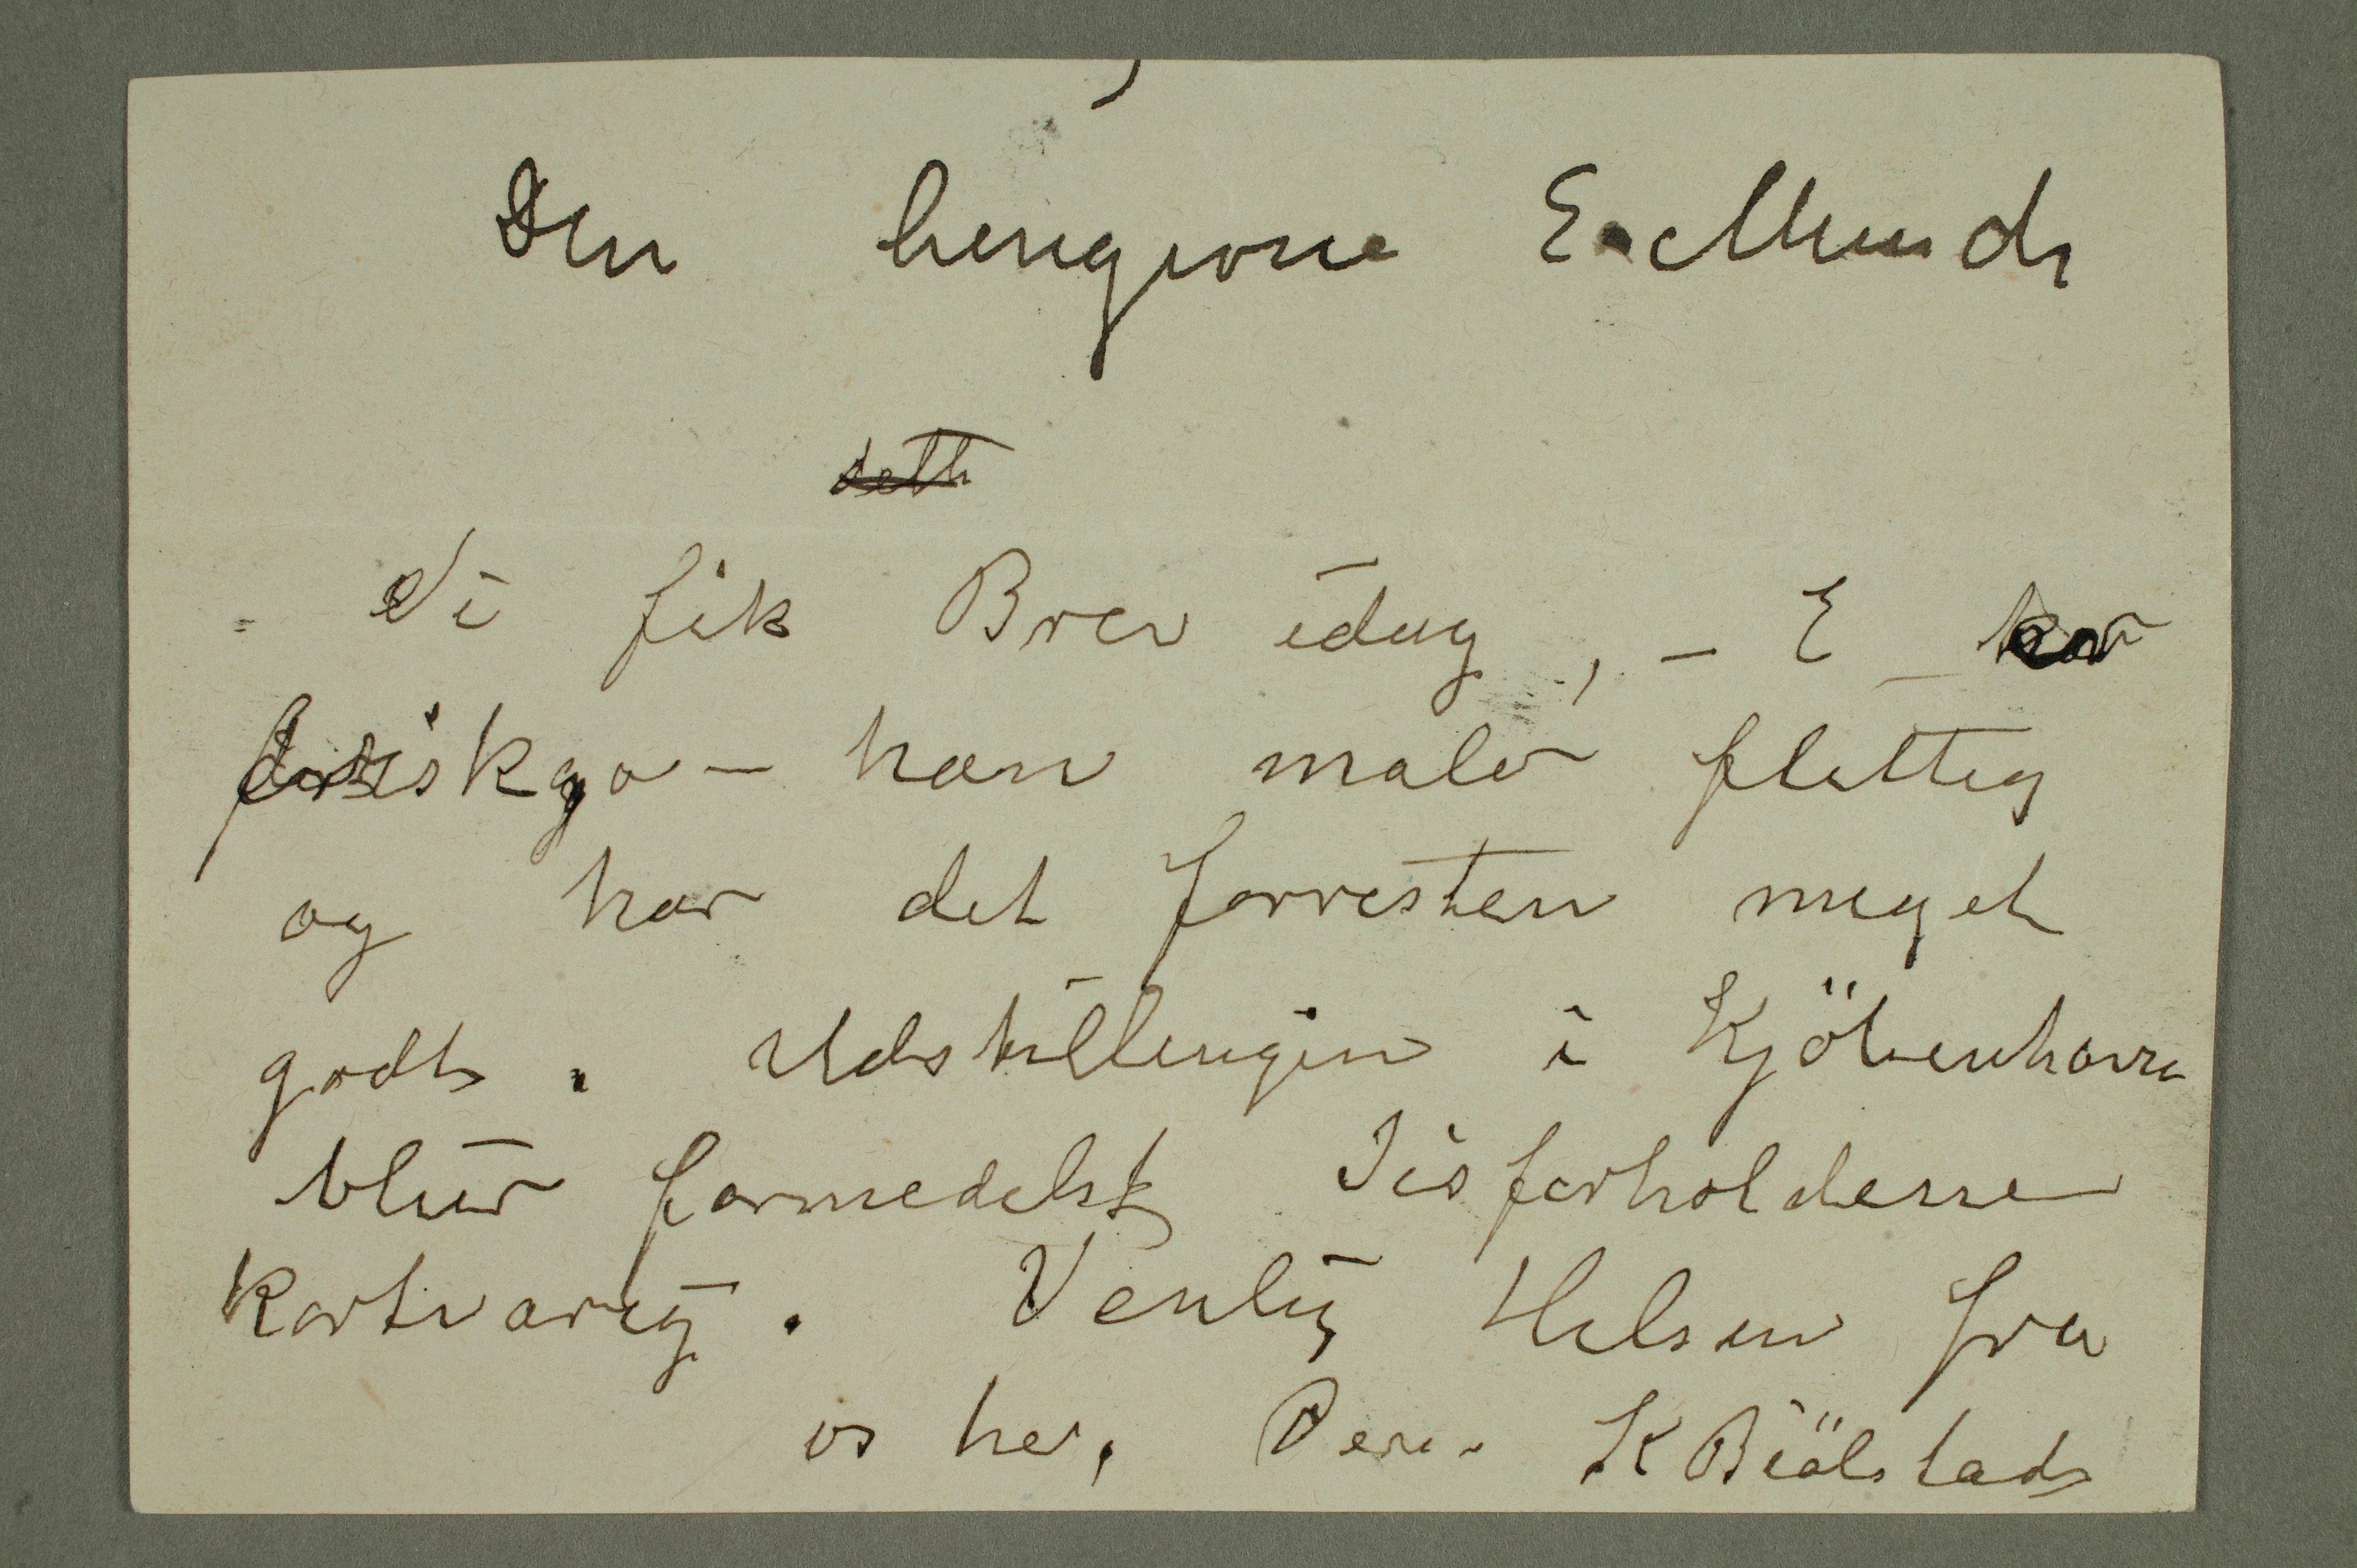 Den hengivne E. Munch
dette
Vi fik Brev idag, – E har
friskga – han maler flittig
og har det forresten meget
godt. Udstillingen i Kjöbenhavn
bliver formedelst Iisforholdene
kortvarig. Venlig Hilsen fra
os her. Deres K Biölstad